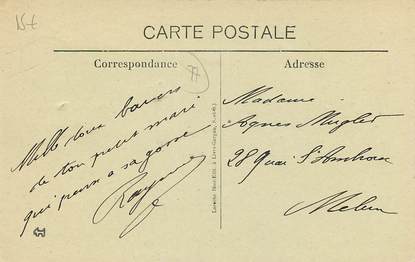 15€
CARTE POSTALE
Correspondance
77
Adresse
Mille doux baisers
de ton petit mari
qui pense a sa gosse
Raymond
Madame
Agnes Muglet
28 Quai St Ambroise
Melun